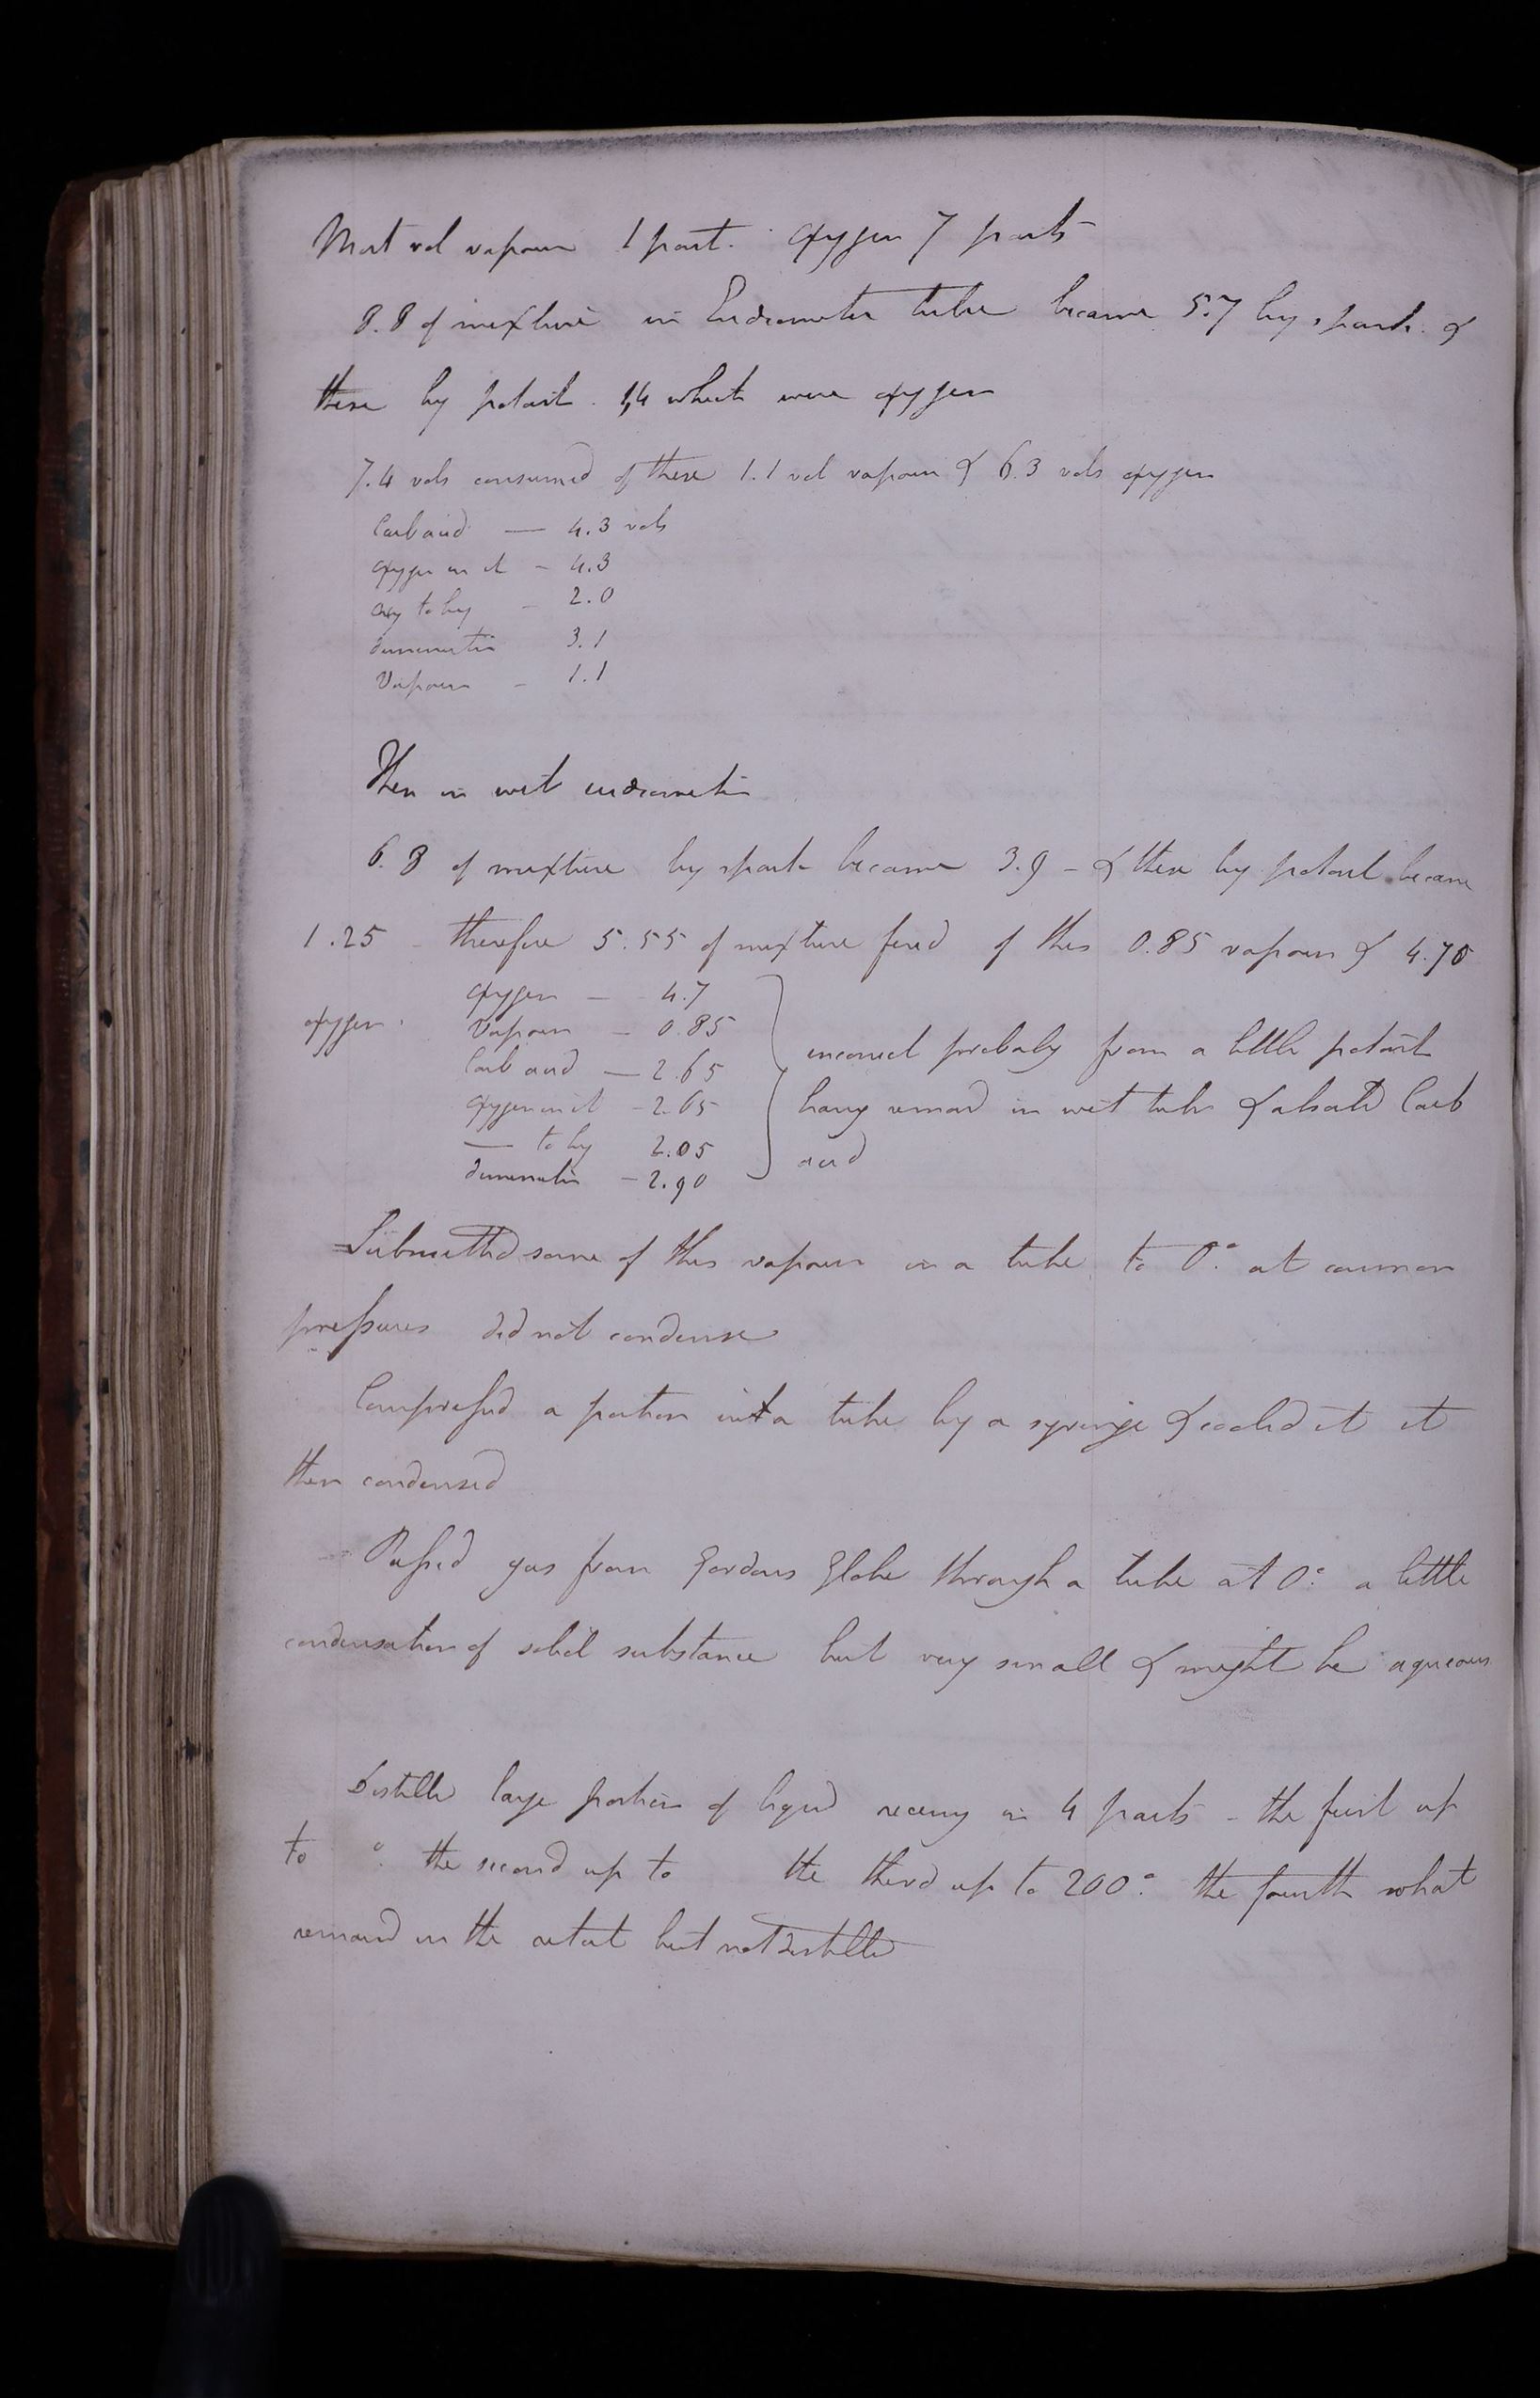 Most vol vapour 1 part. Oxygen 7 parts
8.8 of mixture in Eudiometer tube became 5.7 by spark &
these by potash 1,4 which were oxygen
7.4 vols consumed of these 1.1 vol vapour & 6.3 vols oxygen
Carb acid — 4.3 vols
oxygen in it - 4.3
oxy to hy - 2.0
diminution 3.1
Vapour - 1.1
Then in wet eudiometer
6.8 of mixture by spark became 3.9 - & these by potash became
1.25 therefore 5.55 of mixture fired of this 0.85 vapour & 4.70
oxygen.
oxygen — 4.7
Vapour — 0.85
Carb acid — 2.65
oxygen in it - 2.65
— to hy 2.05
diminution - 2.90
incorrect probably from a little potash
having remaind in wet tube & absorbd Carb
acid
Submitted some of this vapour in a tube to 0° at common
pressures did not condense
Compressed a portion into a tube by a syringe & cooled it it
then condensed
Passed gas from Gordons Globe through a tube at 0° a little
condensation of solid substance but very small & might be aqueous
Distilld large portion of liquid receivg in 4 parts - the first up
to ° the second up to the third up to 200° the fourth what
remaind in the retort but not distilld